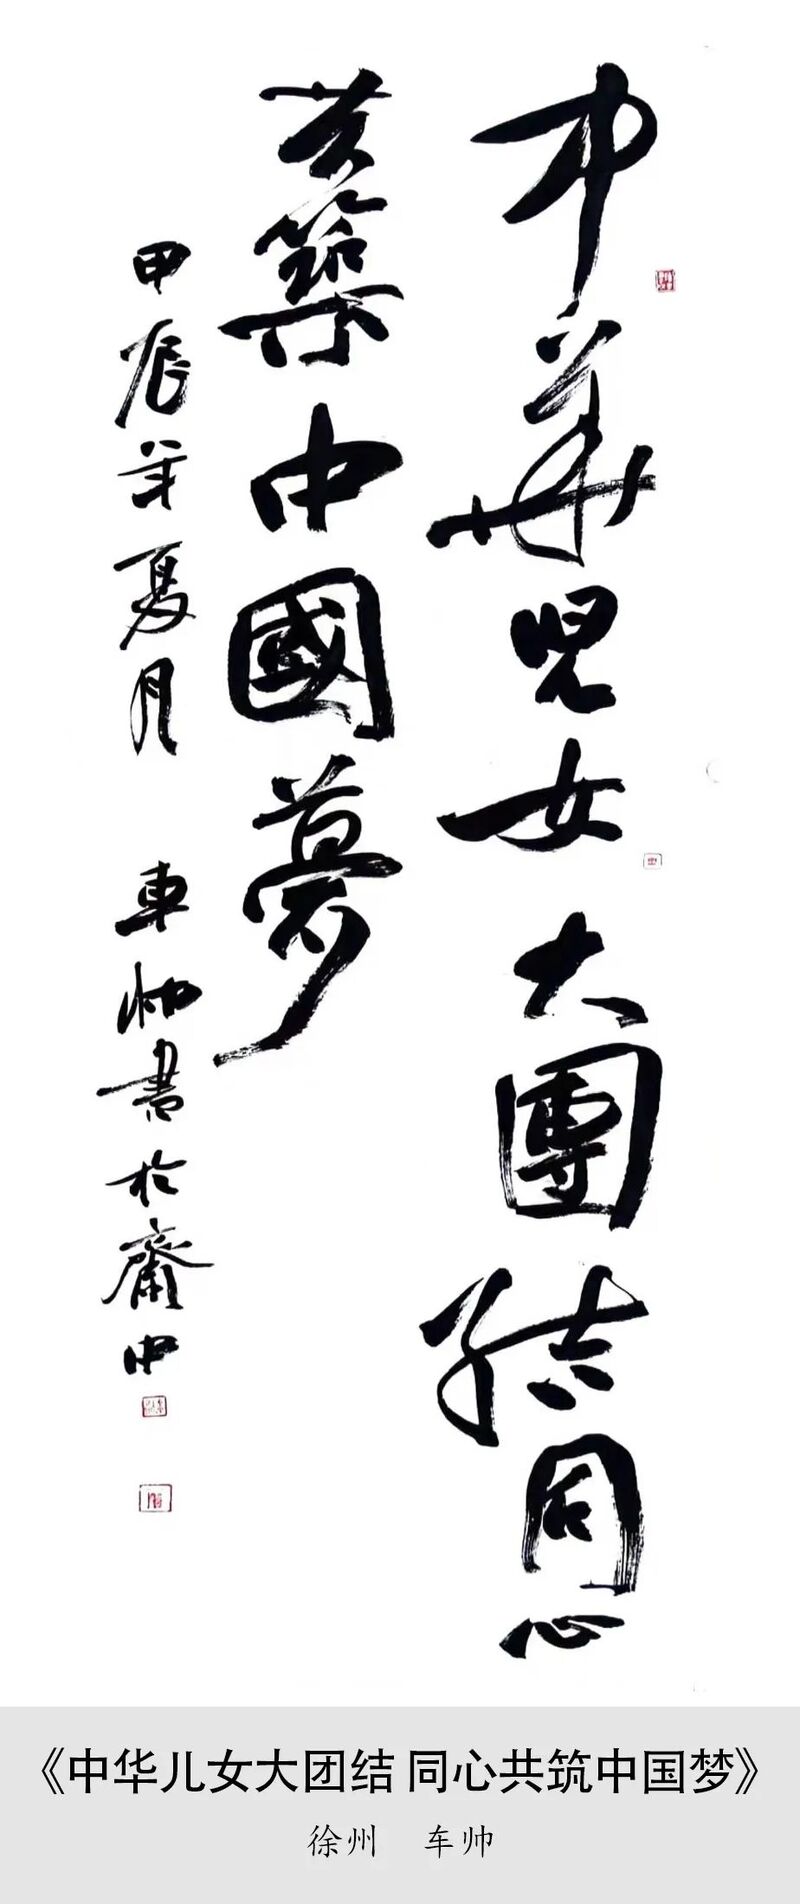 中華兒女大團結同心
共築中國夢
甲辰年夏月 車帥書於齋中
《中华儿女大团结 同心共筑中国梦》
徐州 车帅